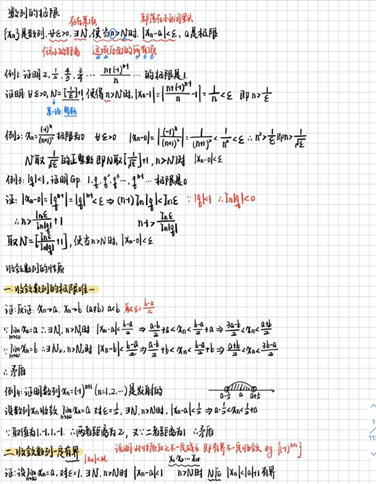 数列的极限
{xₙ}是数列, ∀ε>0, ∃N, 使当n>N时, |xₙ-a|<ε, a是极限
例1: 证明2, 1/2, 4/3, 3/4, … (n+(-1)ⁿ⁻¹)/n … 的极限是1.
证明: ∀ε>0, N=[1/ε]+1, 使得n>N时, |xₙ-1|=|(n+(-1)ⁿ⁻¹)/n - 1|=1/n<ε 即n>1/ε
例2: xₙ=(-1)ⁿ/(n+1)² 极限为0 ∀ε>0 |xₙ-0|=|(-1)ⁿ/(n+1)²|=1/(n+1)²<1/n²<ε ∴n²>1/ε 即n>1/√ε
N取1/√ε的正整数 即N取[1/√ε]+1, n>N时 |xₙ-0|<ε
例3: |q|<1, 证明GP 1, q, q², q³ … qⁿ⁻¹ … 极限是0
证: |xₙ-0|=|qⁿ⁻¹|=|q|ⁿ⁻¹<ε ⇒ (n-1)ln|q|<lnε ∵|q|<1 ∴ln|q|<0
∴n>lnε/ln|q|+1 n-1>lnε/ln|q|
取N=[lnε/ln|q|+1], 使当n>N时, |xₙ-0|<ε
收敛数列的性质
一. 收敛数列的极限唯一
证: 反证: xₙ→a, xₙ→b (a≠b) a<b 取ε=(b-a)/2
∵lim xₙ=a ∴∃N₁, n>N₁时 |xₙ-a|<(b-a)/2 ⇒ (a-b)/2+a<xₙ<(b-a)/2+a ⇒ (3a-b)/2<xₙ<(a+b)/2
∵lim xₙ=b ∴∃N₂, n>N₂时 |xₙ-b|<(b-a)/2 ⇒ (a-b)/2+b<xₙ<(b-a)/2+b ⇒ (a+b)/2<xₙ<(3b-a)/2
∴矛盾
例4: 证明数列xₙ=(-1)ⁿ⁺¹ (n=1,2…)是发散的
设数列xₙ收敛 lim xₙ=a 对ε=1/2, ∃N, n>N时, |xₙ-a|<1/2 ⇒ a-1/2<xₙ<a+1/2
∵取值为1,-1,1,-1 ∴两者距离为2, 又∵二者距离为1 ∴矛盾
二. 收敛数列一定有界 |xₙ|<M
证: 设lim xₙ=a, 对ε=1, ∃N, n>N时 |xₙ-a|<1 n>N时 N后 |xₙ|<|a|+1 有界